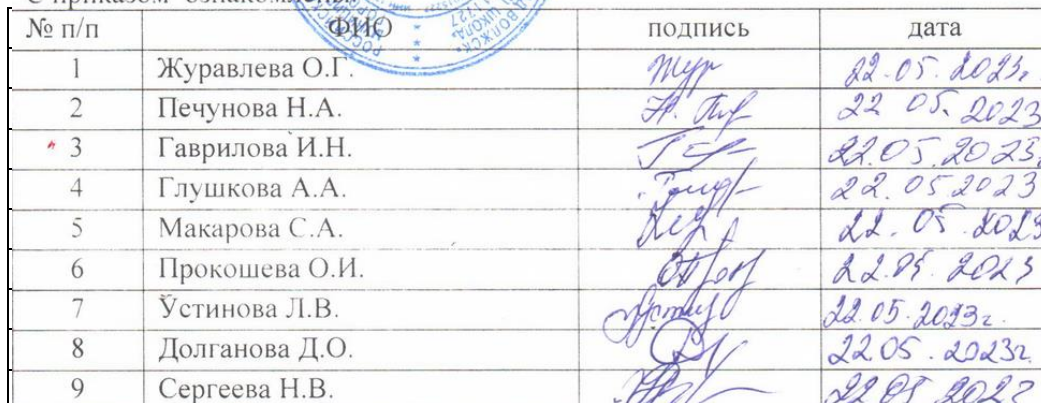 С приказом ознакомлены
№ п/п ФИО подпись дата
1 Журавлева О.Г. Жур 22.05.2023г.
2 Печунова Н.А. 22 05. 2023
3 Гаврилова И.Н. 22.05.2023.
4 Глушкова А.А. 22.052023
5 Макарова С.А. 22.05.2023
6 Прокошева О.И. 22.05.2023
7 Устинова Л.В. 22.05.2023г.
8 Долганова Д.О. 22.05.2023г.
9 Сергеева Н.В. 22 05 2023